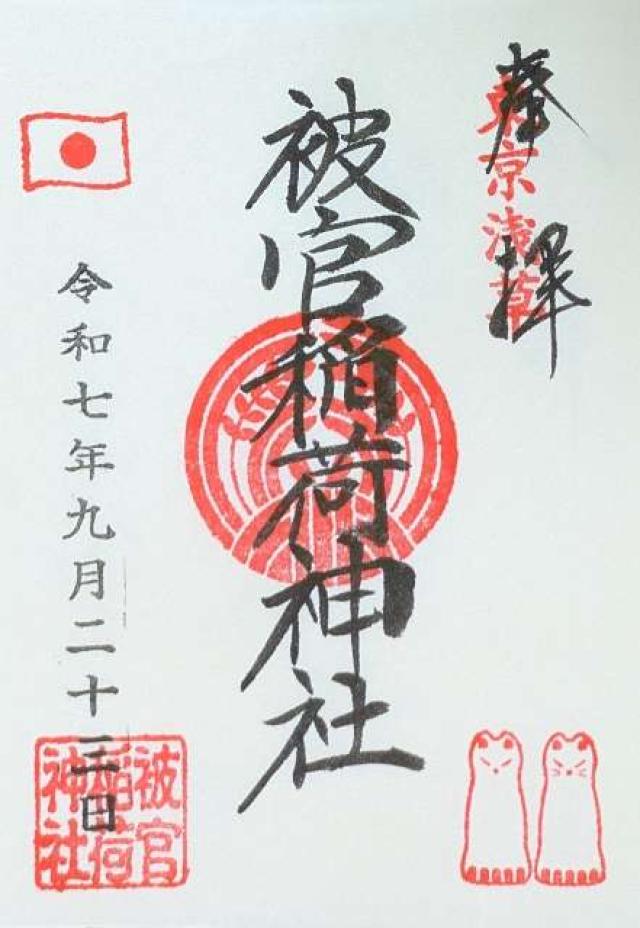 奉拝
東京浅草
被官稲荷神社
令和七年九月二十三日
被官
稲荷
神社